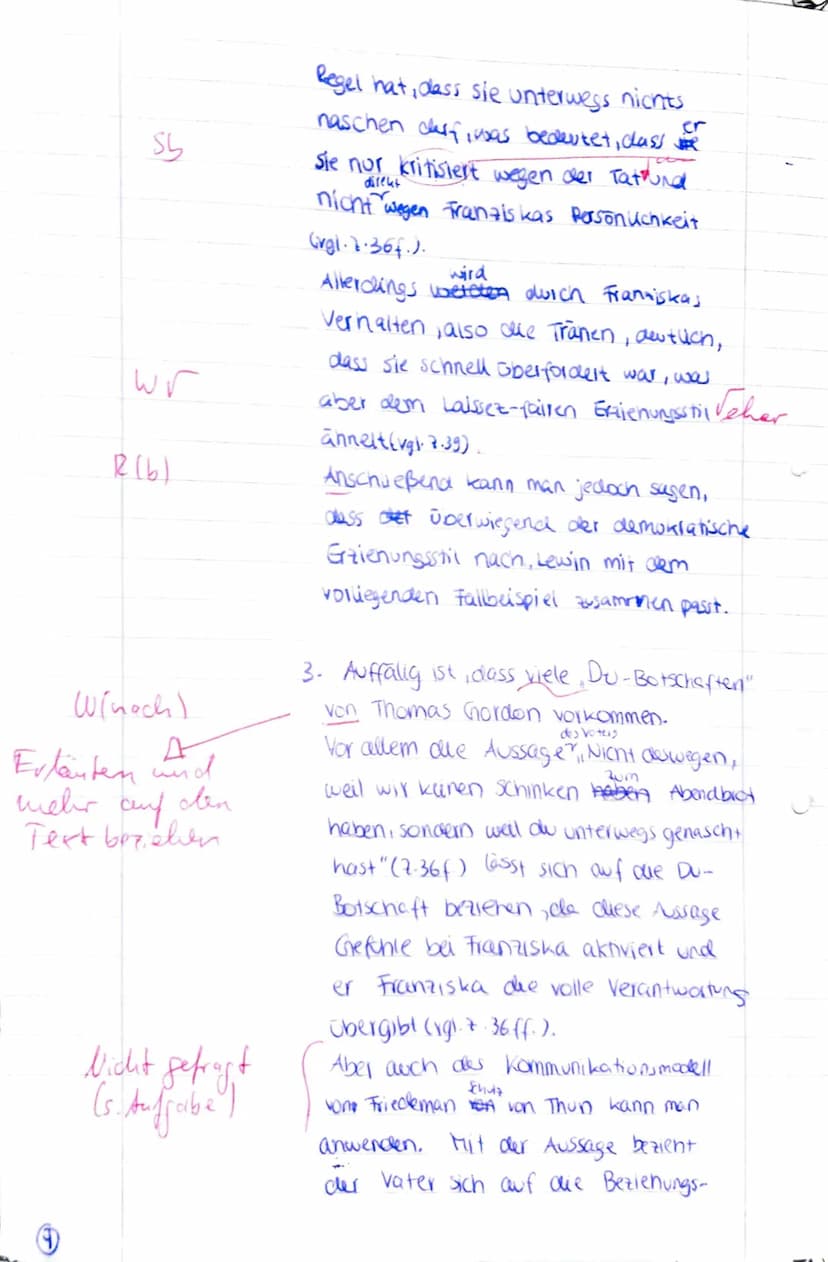 Regel hat, dass sie unterwegs nichts
naschen darf, was bedeutet, dass er
Sb
sie nur kritisiert wegen der Tat und
nicht direkt wegen Franziskas Persönlichkeit
(vgl. Z. 36f.).
Allerdings wird durch Franziskas
Verhalten, also die Tränen, deutlich,
dass sie schnell überfordert war, was
W √
aber dem Laissez-fairen Erzienungsstil √eher
ännelt (vgl. Z. 39).
R(b)
Anschließend kann man jedoch sagen,
dass überwiegend der demokratische
Erzienungsstil nach, Lewin mit dem
vorliegenden Fallbeispiel zusammen passt.
3. Auffälig ist, dass viele „Du-Botschaften"
W(noch)
von Thomas Gordon vorkommen.
Erläutern und
mehr auf den
Text beziehen
Vor allem die Aussage des Vaters „Nicht deswegen,
weil wir keinen Schinken zum Abendbrot
haben, sondern weil du unterwegs genascht
hast" (Z. 36f) lässt sich auf die Du-
Botschaft bezienen, da diese Aussage
Gefühle bei Franziska aktiviert und
er Franziska die volle Verantwortung
übergibt (vgl. Z. 36ff.).
Nicht gefragt
(s. Aufgabe)
Aber auch das Kommunikationsmodell
von Friedeman Schulz von Thun kann man
anwenden. Mit der Aussage bezient
der Vater sich auf die Beziehungs-